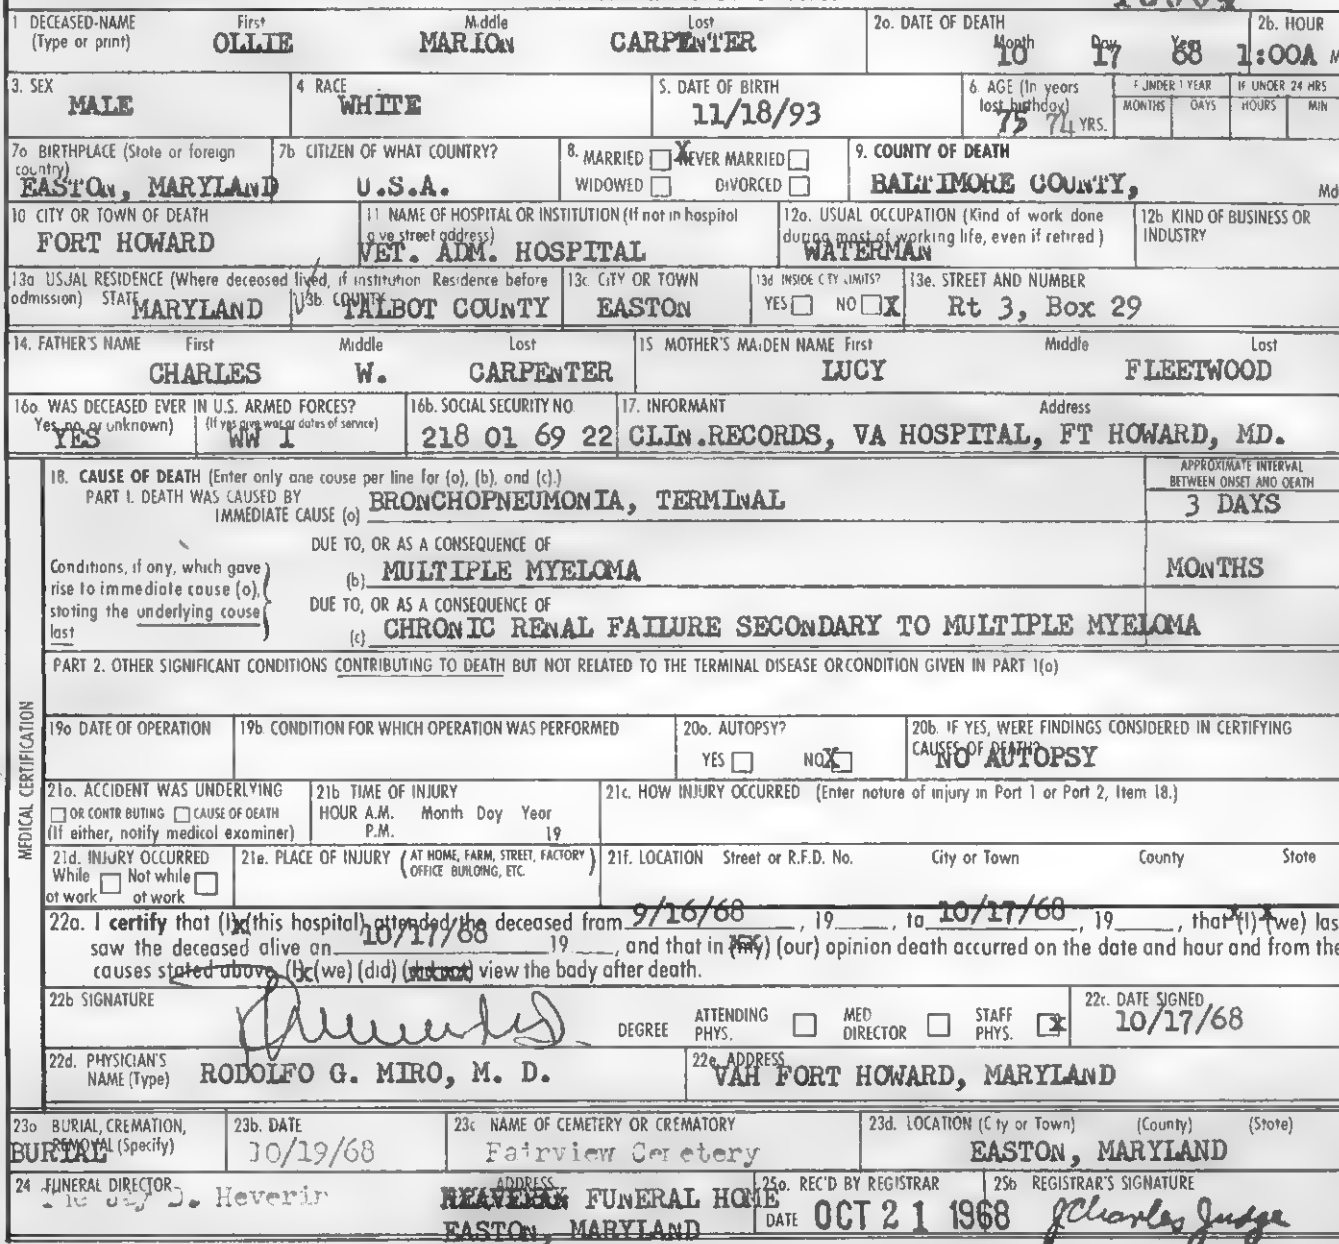 1 DECEASED-NAME (Type or print) First OLLIE Middle MARION Last CARPENTER
2a. DATE OF DEATH Month 10 Day 17 Year 68 2b. HOUR 1:00A M
3. SEX MALE 4 RACE WHITE 5. DATE OF BIRTH 11/18/93 6. AGE (In years last birthday) 75 74 YRS. IF UNDER 1 YEAR MONTHS DAYS IF UNDER 24 HRS HOURS MIN
7a BIRTHPLACE (State or foreign country) EASTON, MARYLAND 7b CITIZEN OF WHAT COUNTRY? U.S.A. 8. MARRIED NEVER MARRIED X WIDOWED DIVORCED 9. COUNTY OF DEATH BALTIMORE COUNTY, Md
10 CITY OR TOWN OF DEATH FORT HOWARD 11 NAME OF HOSPITAL OR INSTITUTION (If not in hospital give street address) VET. ADM. HOSPITAL 12a. USUAL OCCUPATION (Kind of work done during most of working life, even if retired) WATERMAN 12b KIND OF BUSINESS OR INDUSTRY
13a USUAL RESIDENCE (Where deceased lived, if institution Residence before admission) STATE MARYLAND 13b. COUNTY TALBOT COUNTY 13c. CITY OR TOWN EASTON 13d INSIDE CITY LIMITS? YES NO X 13e. STREET AND NUMBER Rt 3, Box 29
14. FATHER'S NAME First CHARLES Middle W. Last CARPENTER 15 MOTHER'S MAIDEN NAME First LUCY Middle Last FLEETWOOD
16a. WAS DECEASED EVER IN U.S. ARMED FORCES? Yes, no, or unknown) YES (If yes give war or dates of service) WW I 16b. SOCIAL SECURITY NO 218 01 69 22 17. INFORMANT Address CLIN.RECORDS, VA HOSPITAL, FT HOWARD, MD.
MEDICAL CERTIFICATION
18. CAUSE OF DEATH (Enter only one cause per line for (a), (b), and (c).) APPROXIMATE INTERVAL BETWEEN ONSET AND DEATH
PART I. DEATH WAS CAUSED BY IMMEDIATE CAUSE (a) BRONCHOPNEUMONIA, TERMINAL 3 DAYS
Conditions, if any, which gave rise to immediate cause (a), stating the underlying cause last
DUE TO, OR AS A CONSEQUENCE OF
(b) MULTIPLE MYELOMA MONTHS
DUE TO, OR AS A CONSEQUENCE OF
(c) CHRONIC RENAL FAILURE SECONDARY TO MULTIPLE MYELOMA
PART 2. OTHER SIGNIFICANT CONDITIONS CONTRIBUTING TO DEATH BUT NOT RELATED TO THE TERMINAL DISEASE OR CONDITION GIVEN IN PART 1(a)
19a DATE OF OPERATION 19b CONDITION FOR WHICH OPERATION WAS PERFORMED 20a. AUTOPSY? YES NO X 20b. IF YES, WERE FINDINGS CONSIDERED IN CERTIFYING CAUSES OF DEATH? NO AUTOPSY
21a. ACCIDENT WAS UNDERLYING OR CONTRIBUTING CAUSE OF DEATH (If either, notify medical examiner) 21b TIME OF INJURY HOUR A.M. P.M. Month Day Year 19 21c. HOW INJURY OCCURRED (Enter nature of injury in Part 1 or Part 2, Item 18.)
21d. INJURY OCCURRED While at work Not while at work 21e. PLACE OF INJURY (AT HOME, FARM, STREET, FACTORY OFFICE BUILDING, ETC.) 21f. LOCATION Street or R.F.D. No. City or Town County State
22a. I certify that (I)x(this hospital) attended the deceased from 9/16/68, 19 to 10/17/68, 19, that (I) (we) las
saw the deceased alive on 10/17/68 19, and that in (my) (our) opinion death occurred on the date and hour and from the
causes stated above, (I)x(we) (did) (did not) view the body after death.
22b SIGNATURE DEGREE ATTENDING PHYS. MED DIRECTOR STAFF PHYS. X 22c. DATE SIGNED 10/17/68
22d. PHYSICIAN'S NAME (Type) RODOLFO G. MIRO, M. D. 22e. ADDRESS VAH FORT HOWARD, MARYLAND
23a BURIAL, CREMATION, REMOVAL (Specify) BURIAL 23b. DATE 10/19/68 23c NAME OF CEMETERY OR CREMATORY Fairview Cemetery 23d. LOCATION (City or Town) (County) (State) EASTON, MARYLAND
24 FUNERAL DIRECTOR D. Heverin ADDRESS FUNERAL HOME EASTON, MARYLAND 25a. REC'D BY REGISTRAR DATE OCT 21 1968 25b REGISTRAR'S SIGNATURE J Charles Judge